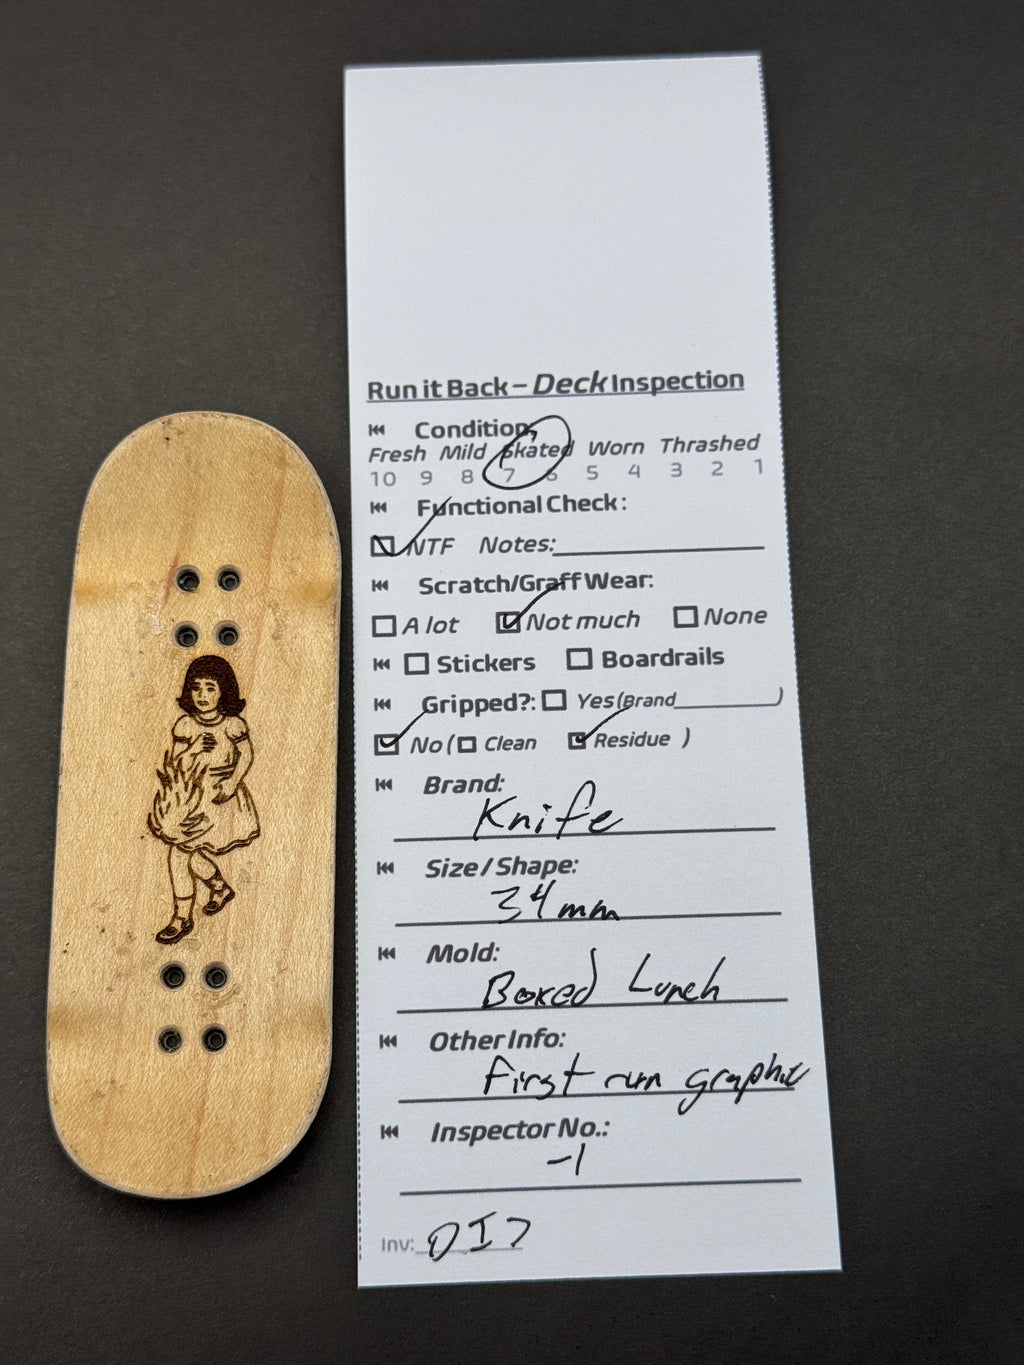 Run it Back – Deck Inspection
Condition:
Fresh Mild Skated Worn Thrashed
10 9 8 7 6 5 4 3 2 1
Functional Check:
NTF Notes:
Scratch/Graff Wear:
A lot Not much None
Stickers Boardrails
Gripped?: Yes(Brand )
No ( Clean Residue )
Brand:
Knife
Size/Shape:
34mm
Mold:
Boxed Lunch
Other Info:
First run graphic
Inspector No.:
-1
Inv: